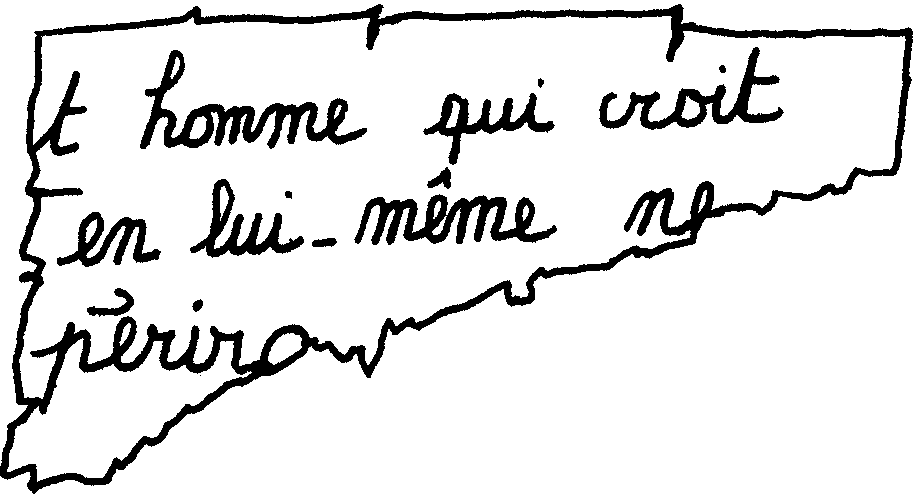 t homme qui croit
en lui-même ne
périra